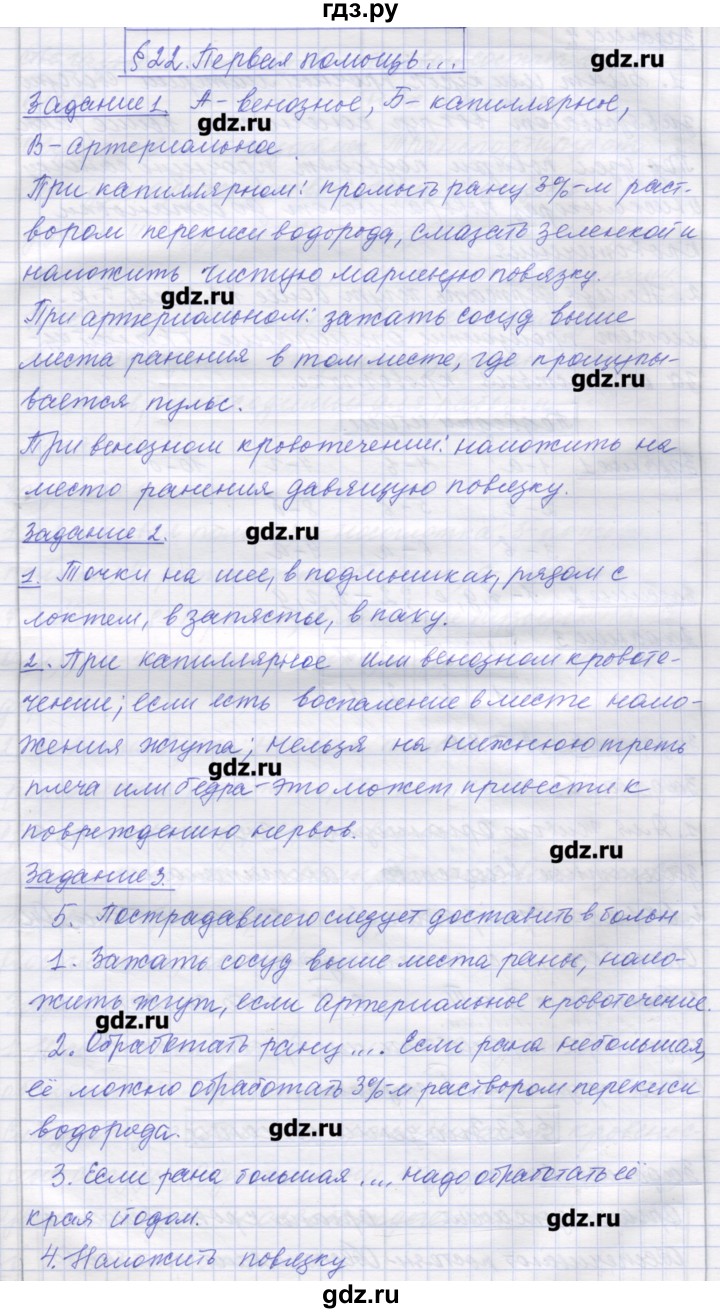 гдз.ру
§22. Первая помощь...
gdz.ru
Задание 1. А - венозное, Б - капиллярное,
gdz.ru
В - артериальное.
При капиллярном: промыть рану 3%-м раст-
вором перекиси водорода, смазать зеленкой и
наложить чистую марлевую повязку.
gdz.ru
При артериальном: зажать сосуд выше
места ранения в том месте, где прощупы-
gdz.ru
вается пульс.
При венозном кровотечении: наложить на
место ранения давящую повязку.
Задание 2.
gdz.ru
1. Точки на шее, в подмышках, рядом с
локтем, в запястье, в паху.
2. При капиллярное или венозном кровоте-
чении; если есть воспаление в месте нало-
жения жгута; нельзя на нижнюю треть
gdz.ru
плеча или бедра - это может привести к
повреждению нервов.
gdz.ru
Задание 3.
5. Пострадавшего следует доставить в больн
1. Зажать сосуд выше места раны, нало-
жить жгут, если артериальное кровотечение.
gdz.ru
2. Обработать рану .... Если рана небольшая,
её можно обработать 3%-м раствором перекиси
водорода.
gdz.ru
3. Если рана большая ..., надо обработать её
края йодом.
gdz.ru
4. Наложить повязку
gdz.ru